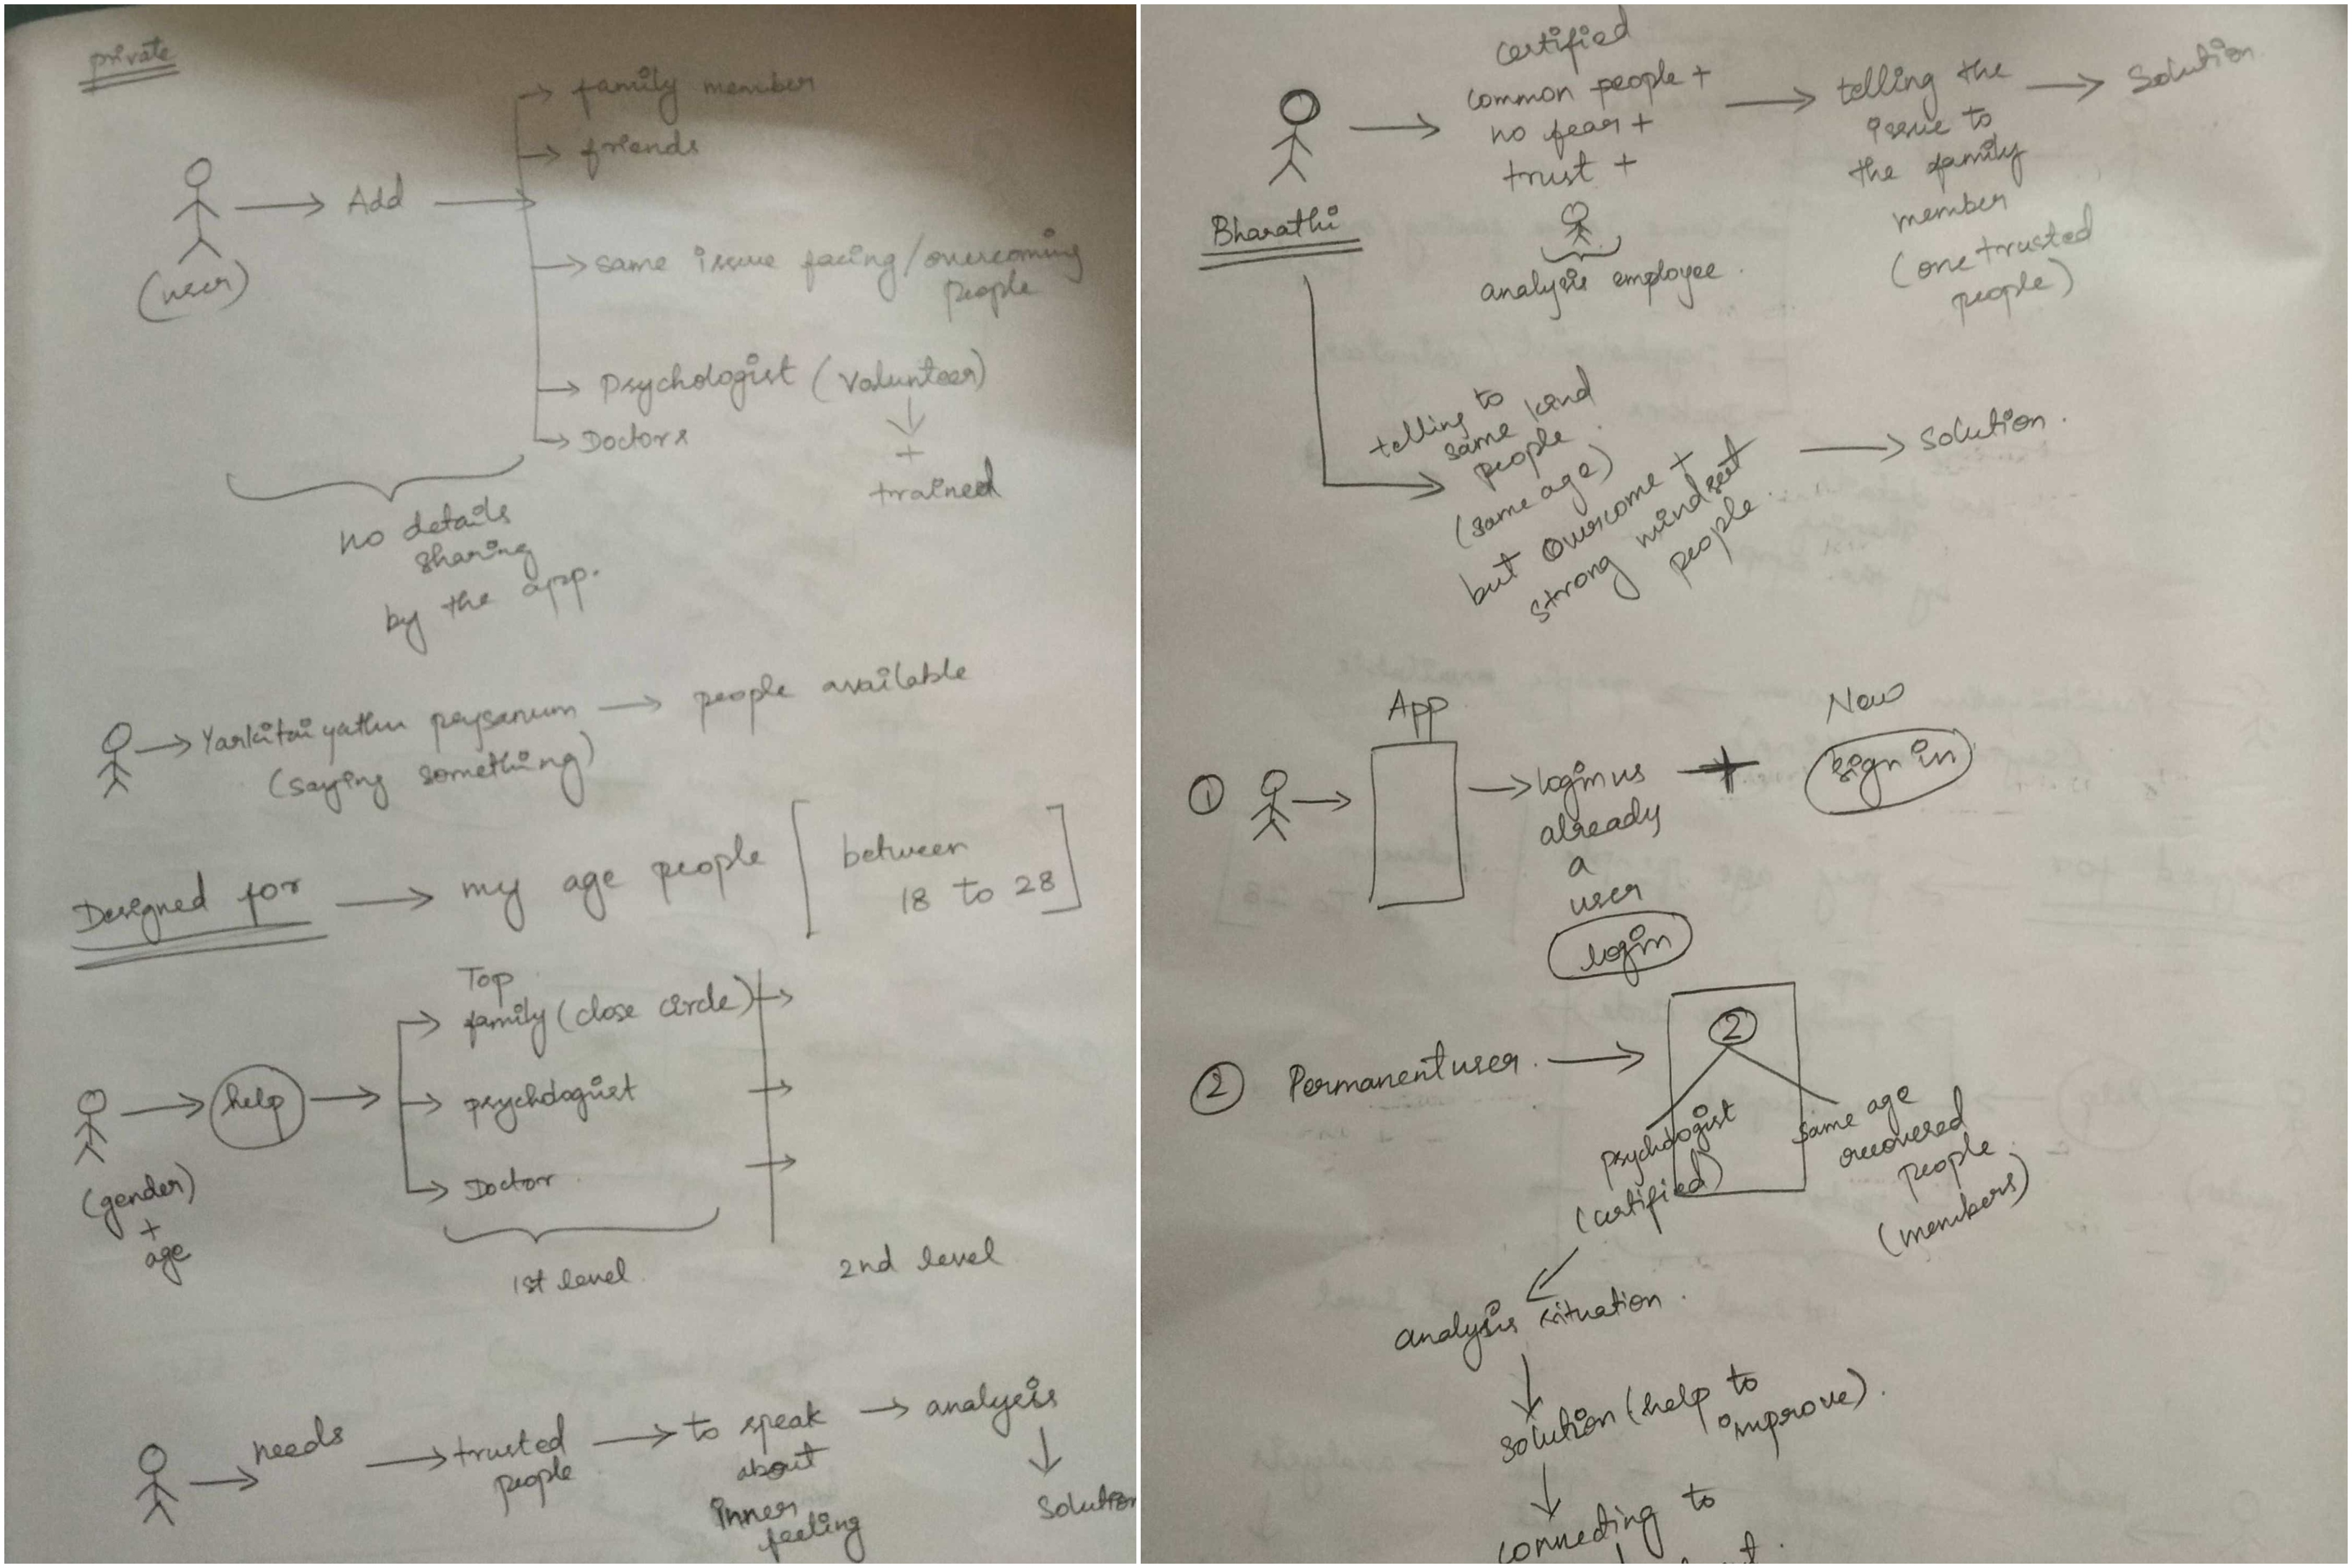 private
family member
friends
Add
(user)
same issue facing/overcoming
people
Psychologist (Volunteer)
+
trained
Doctors
no details
sharing
by the app.
Yarkitaiyathu peysanum
(saying something)
people available
Designed for
my age people
between
18 to 28
help
Top
family (close circle)
psychologist
Doctor
(gender)
+
age
1st level
2nd level
needs
trusted
people
to speak
about
inner
feeling
analysis
Solution
certified
common people +
no fear +
trust +
analysis employee.
Bharathi
telling the
issue to
the family
member
(one trusted
people)
Solution
telling to
same kind
people
(same age)
but overcome +
strong mindset
people.
Solution.
App
1
login us
already
a
user
login
New
sign in
2 Permanent user.
2
psychologist
(certified)
same age
recovered
people
(members)
analysis situation.
solution (help to
improve).
connecting to